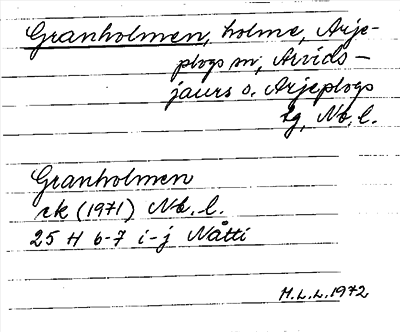 Granholmen, holme, Arje-
plogs sn, Arvids-
jaurs o. Arjeplogs
lg, Nb. l.
Granholmen
ek (1971) Nb. l.
25 H 6-7 i-j Nåtti
H.L.L. 1972